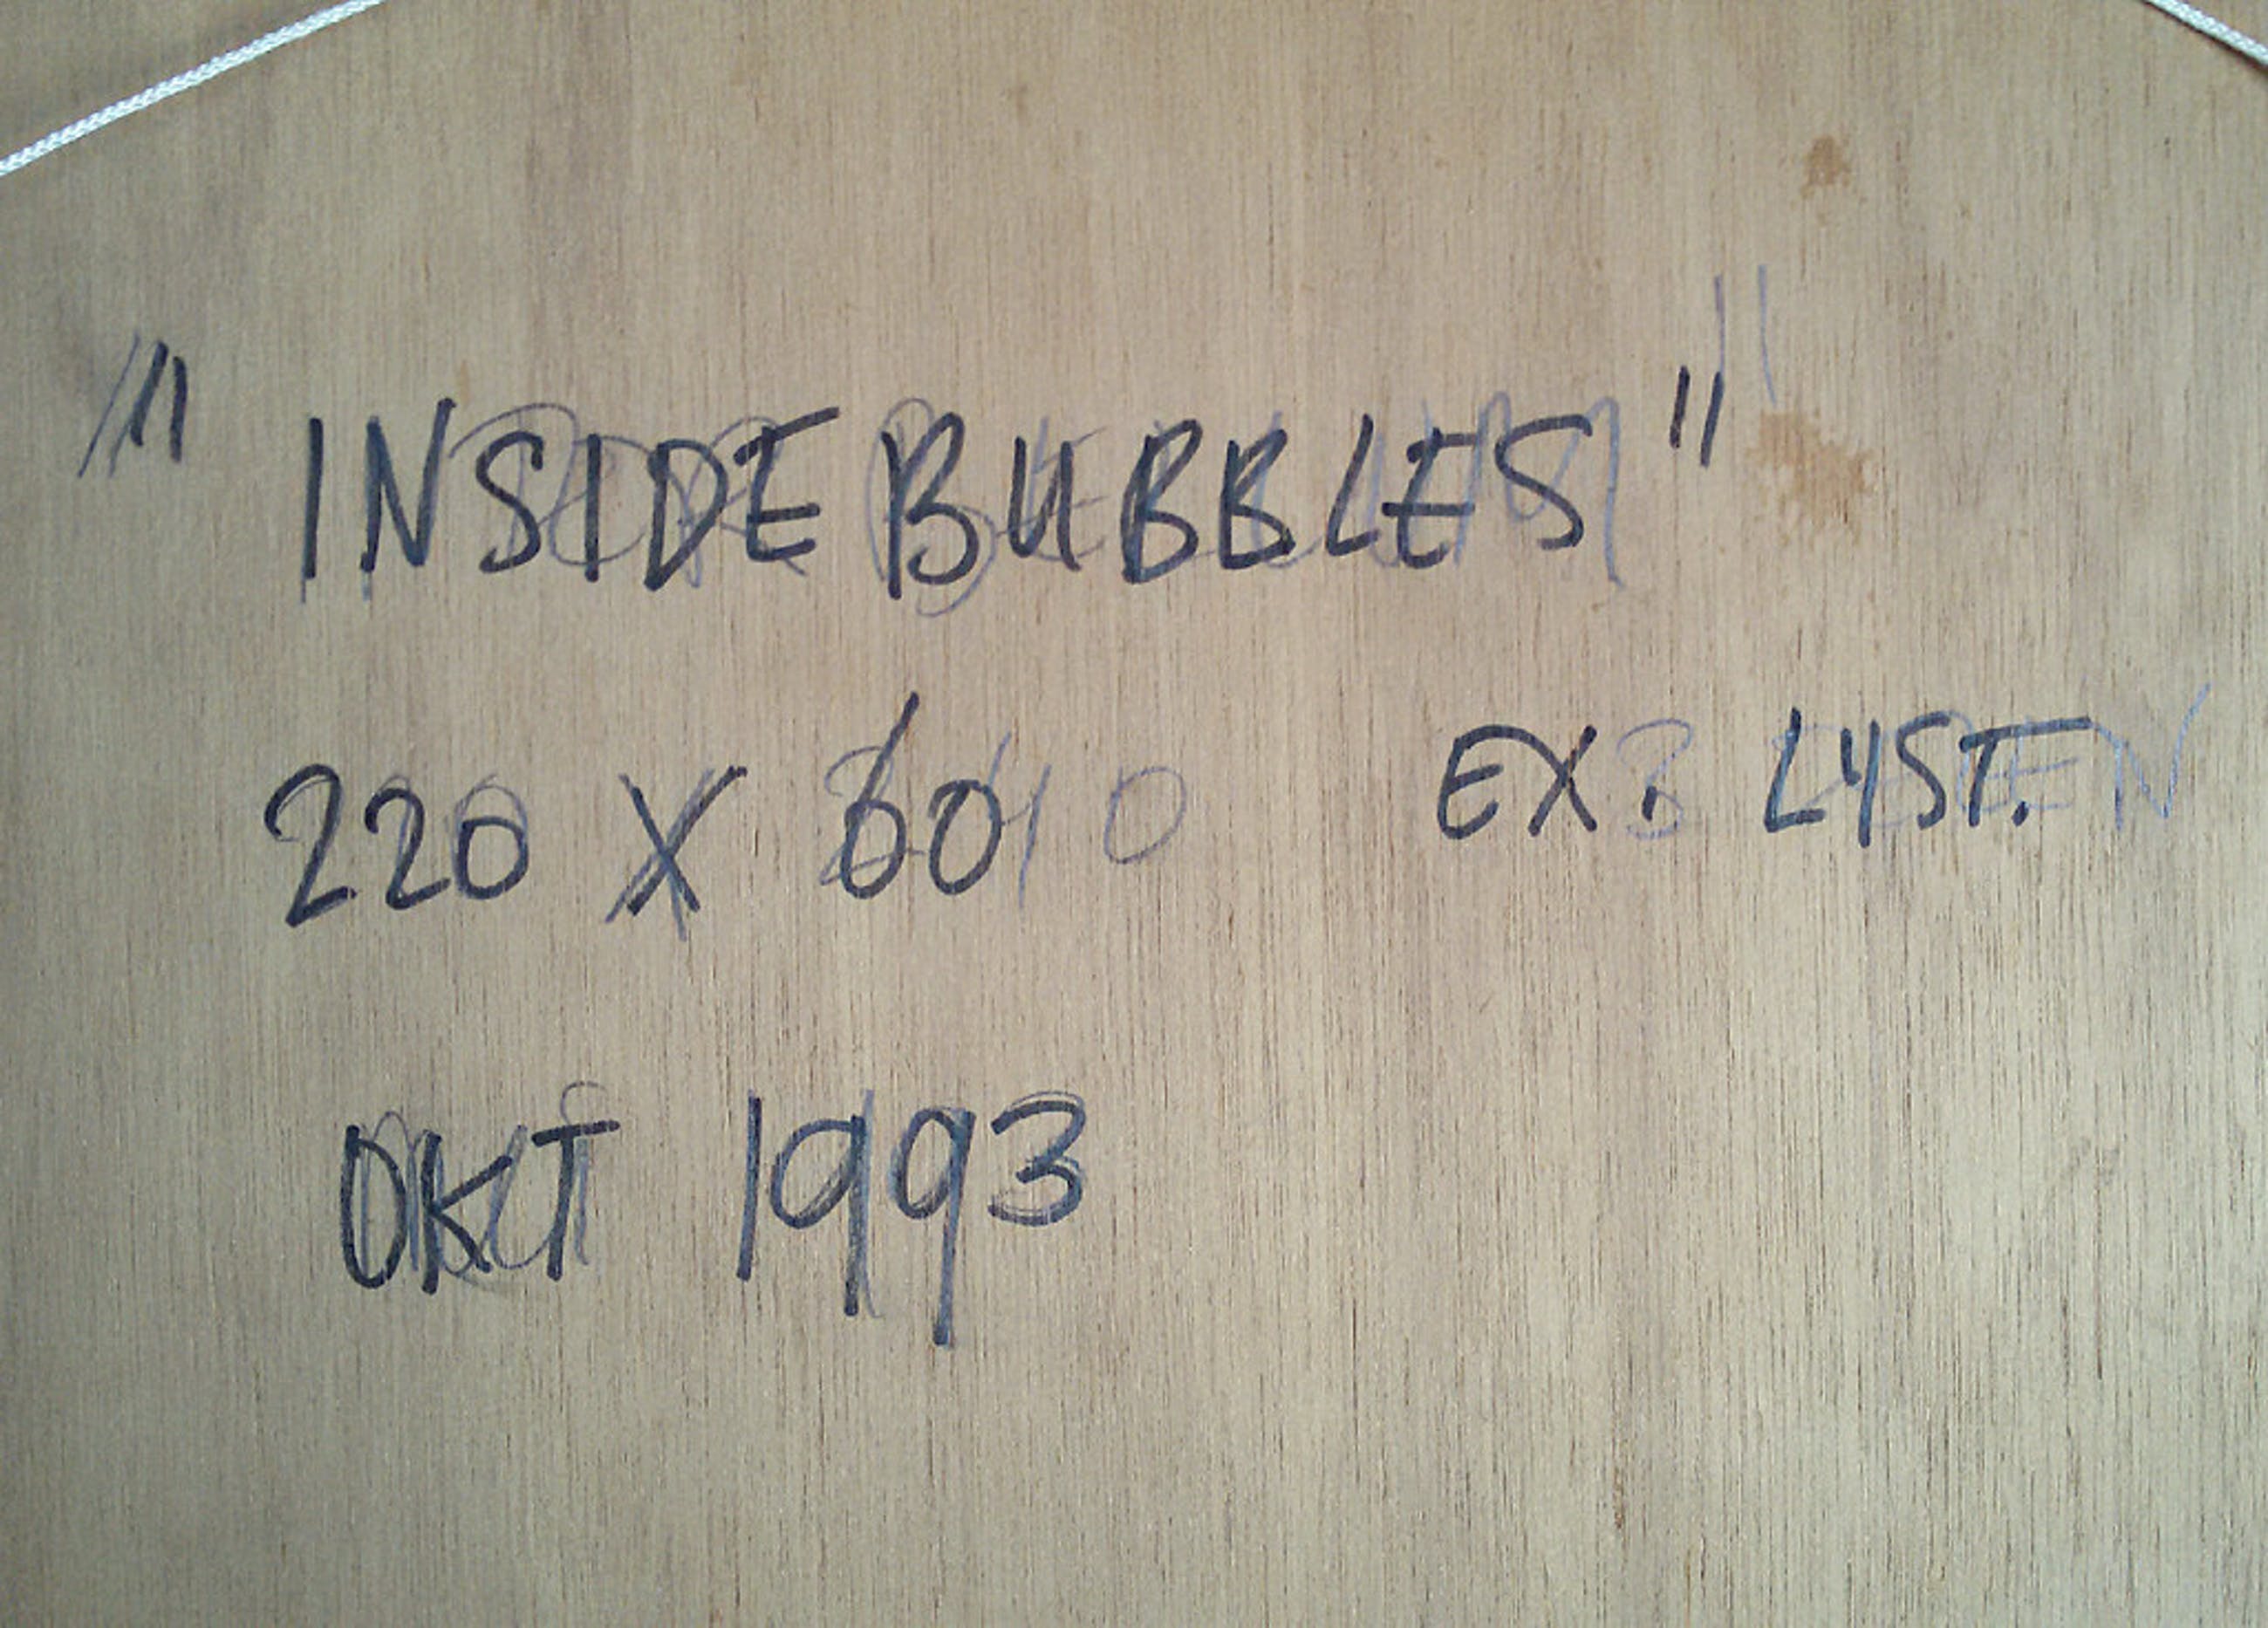 " INSIDE BUBBLES "
220 X 60 EX. LYST.
OKT 1993